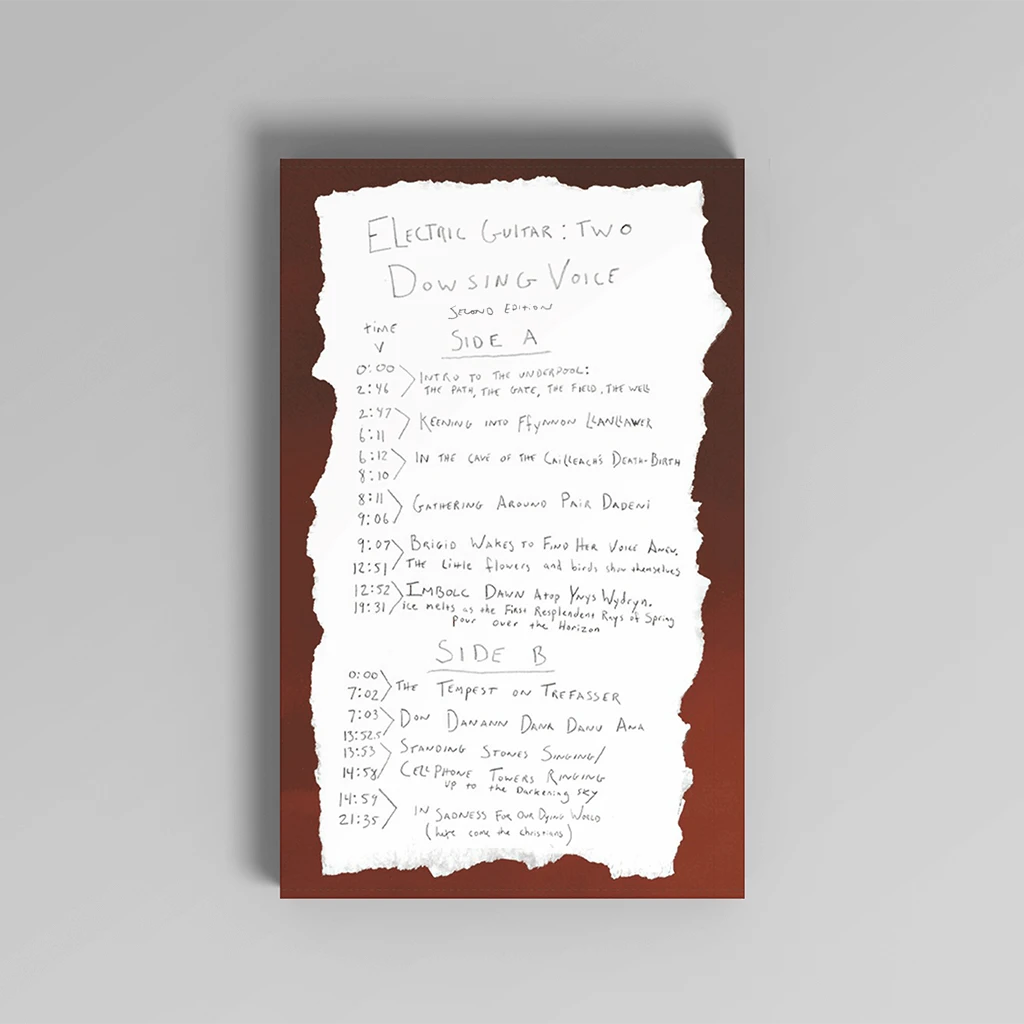 ELECTRIC GUITAR: TWO
DOWSING VOICE
SECOND EDITION
time
V
SIDE A
0:00
INTRO TO THE UNDERPOOL:
2:46
THE PATH, THE GATE, THE FIELD, THE WELL
2:47
KEENING INTO FFYNNON LLANLLAWER
6:11
6:12
IN THE CAVE OF THE CAILLEACH'S DEATH-BIRTH
8:10
8:11
GATHERING AROUND PAIR DADENI
9:06
9:07
BRIGID WAKES TO FIND HER VOICE ANEW.
12:51
THE Little flowers and birds show themselves
12:52
IMBOLC DAWN Atop YNYS WYDRYN.
19:31
Ice melts as the First Resplendent Rays of Spring
pour over the Horizon
SIDE B
0:00
THE TEMPEST ON TREFASSER
7:02
7:03
DON DANANN DANA DANU ANA
13:52.5
13:53
STANDING STONES SINGING/
14:58
CELLPHONE TOWERS RINGING
up to the Darkening sky
14:59
IN SADNESS FOR OUR DYING WORLD
21:35
(here come the christians)